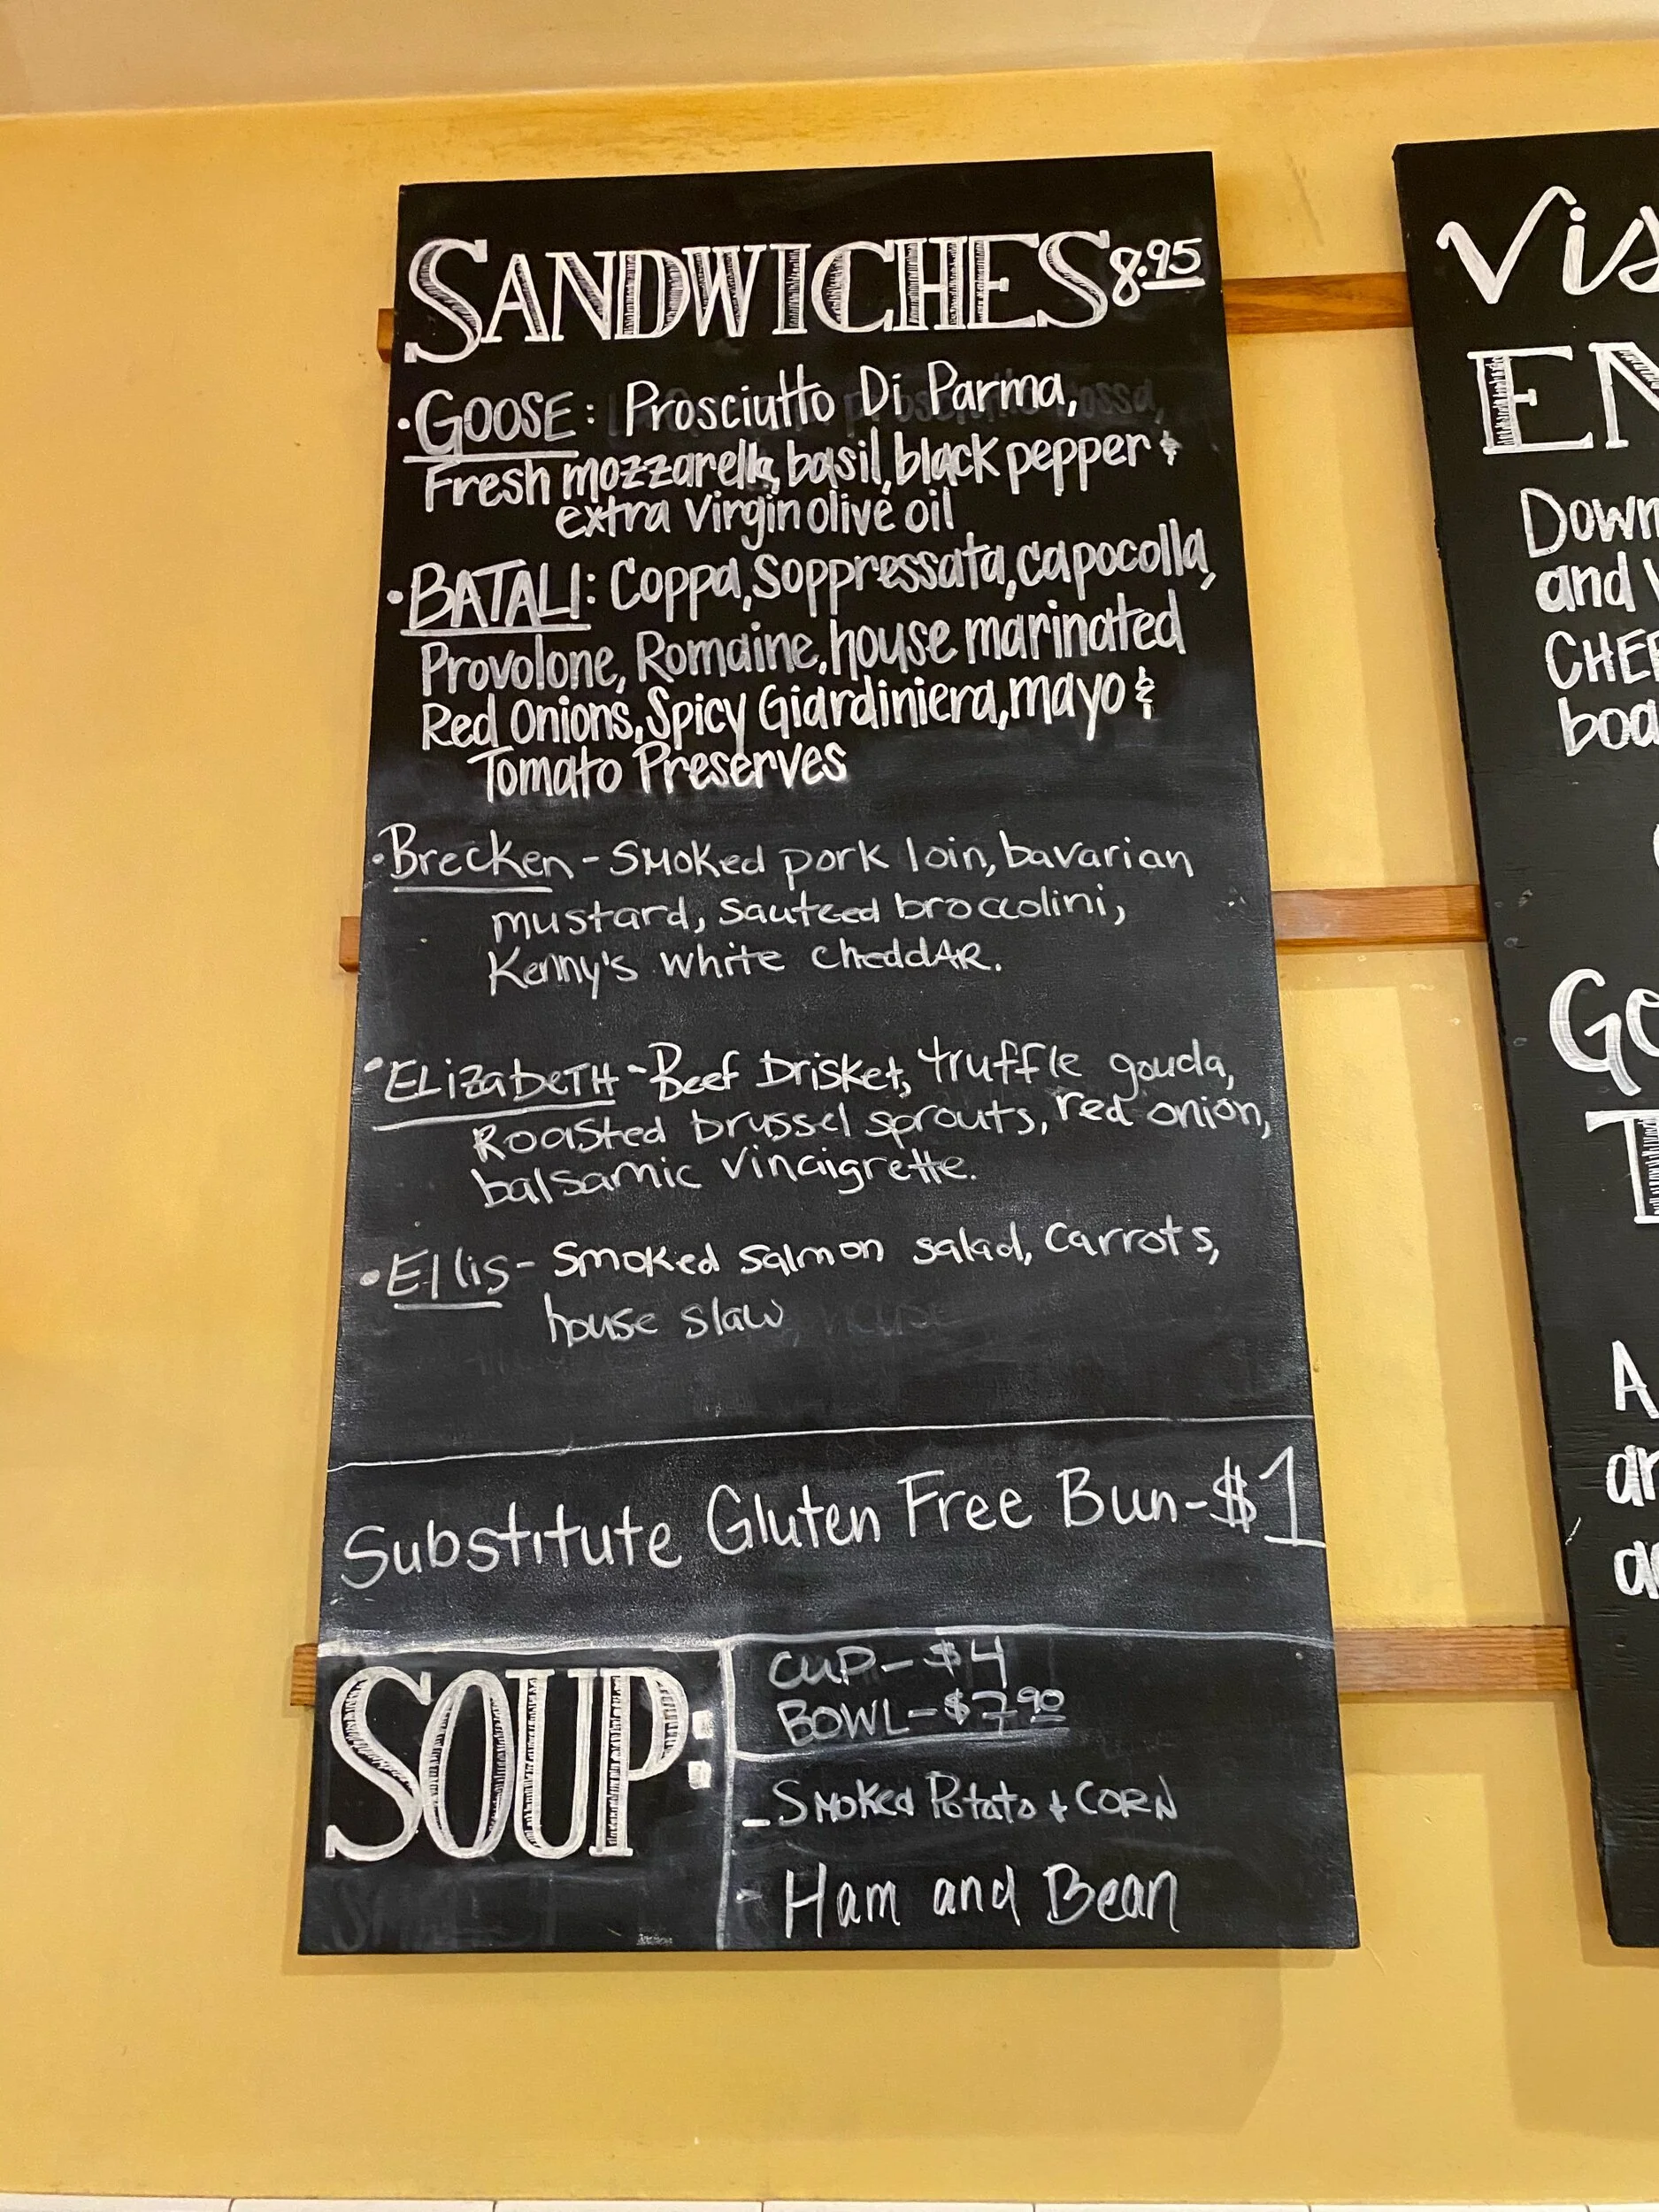 SANDWICHES 8.95
• GOOSE: Prosciutto Di Parma,
Fresh mozzarella, basil, black pepper &
extra virgin olive oil
• BATALI: Coppa, Soppressata, capocolla,
Provolone, Romaine, house marinated
Red Onions, Spicy Giardiniera, mayo &
Tomato Preserves
• Brecken - Smoked pork loin, bavarian
mustard, sauteed broccolini,
Kenny's white cheddAR.
• ELizabeTH - Beef brisket, truffle gouda,
Roasted brussel sprouts, red onion,
balsamic vinaigrette.
• Ellis - Smoked salmon salad, carrots,
house slaw
Substitute Gluten Free Bun - $1
SOUP:
CUP - $4
BOWL - $7.90
- Smoked Potato + CORN
- Ham and Bean
Vis
EN
Down
and
CHE
boa
Go
T
A
ar